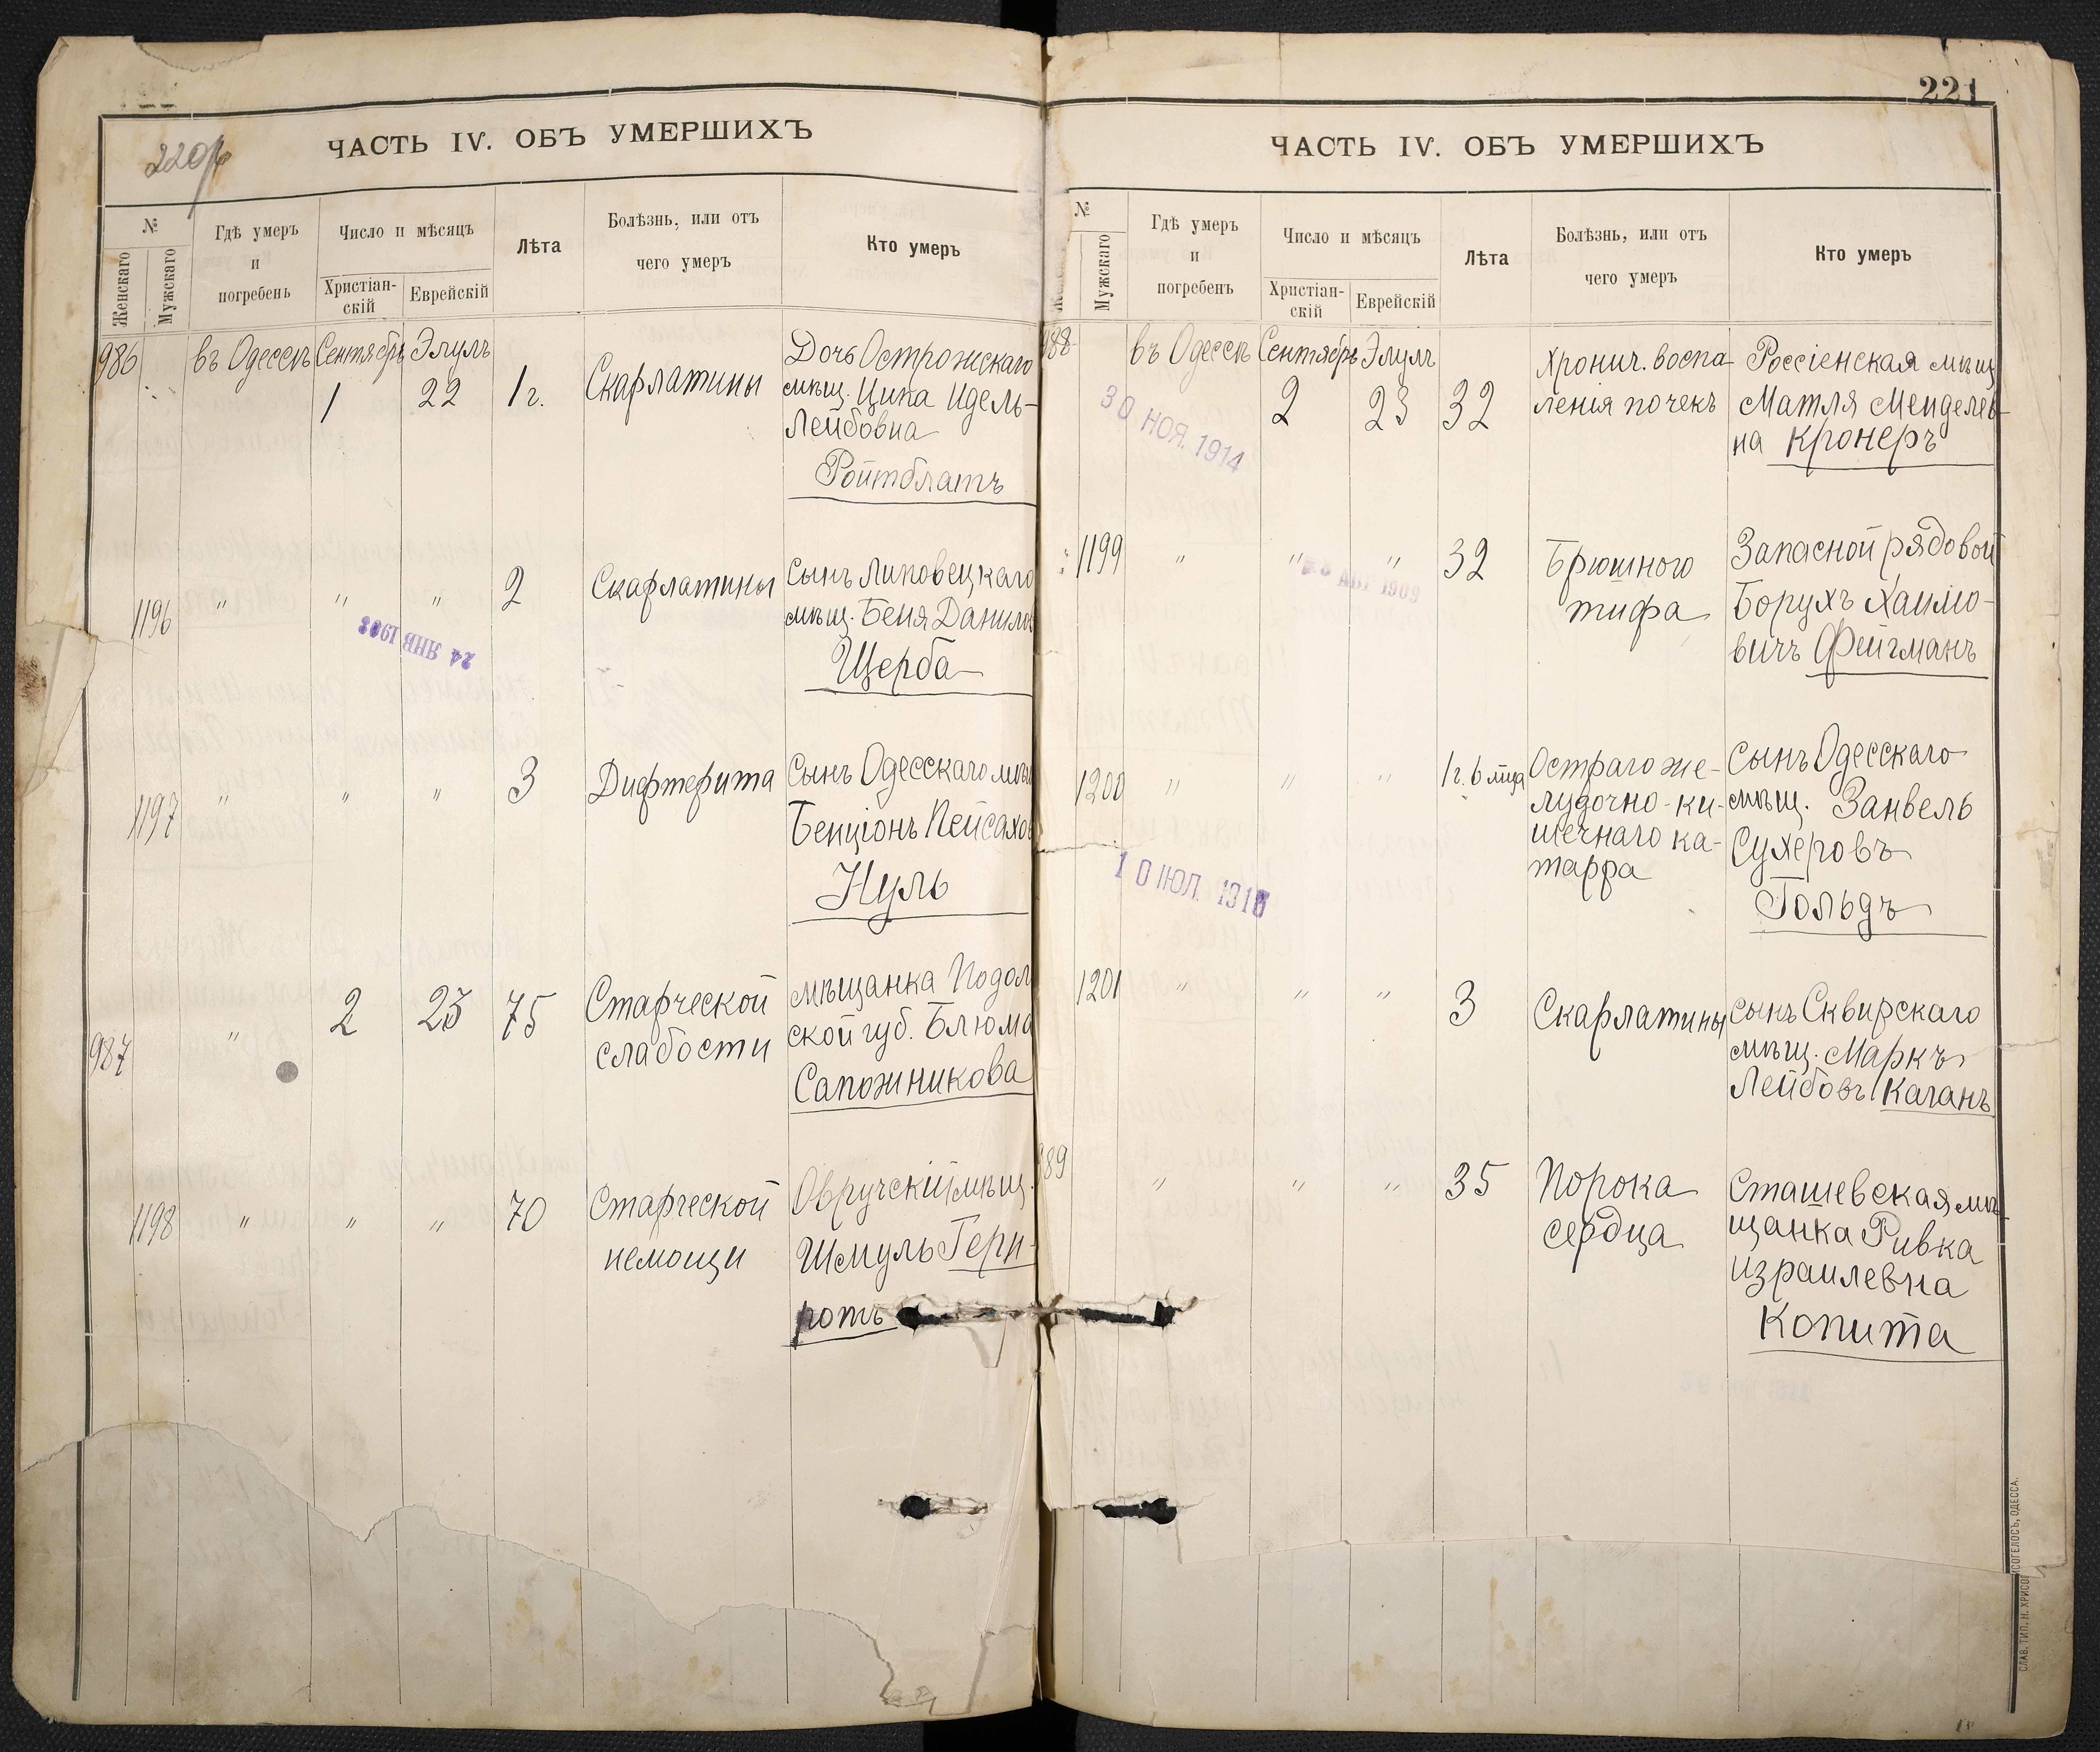 220 об
ЧАСТЬ IV. ОБЪ УМЕРШИХЪ
№
Женскаго
Мужскаго
Гдѣ умеръ
и
погребенъ
Число и мѣсяцъ
Христіан-
скій
Еврейскій
Лѣта
Болѣзнь, или отъ
чего умеръ
Кто умеръ
986 въ Одессѣ Сентябрь Элулъ
1 22 1 г. Скарлатины
Дочь Острожскаго
мѣщ. Ципа Идель-
Лейбовна
Ройтблатъ
1196 " " " 2 Скарлатины
Сынъ Липовецкаго
мѣщ. Беня Данилов
Щерба
24 ЯНВ 1903
1197 " " " 3 Дифтерита
Сынъ Одесскаго мѣщ
Бенціонъ Пейсахов
Нуль
987 " 2 23 75 Старческой
слабости
мѣщанка Подоль
ской губ. Блюма
Сапожникова
1198 " " " 70 Старческой
немощи
Овручскій мѣщ.
Шмуль Герн-
ротъ
221
ЧАСТЬ IV. ОБЪ УМЕРШИХЪ
№
Мужскаго
Гдѣ умеръ
и
погребенъ
Число и мѣсяцъ
Христіан-
скій
Еврейскій
Лѣта
Болѣзнь, или отъ
чего умеръ
Кто умеръ
988 въ Одессѣ Сентябрь Элулъ
2 23 32
Хронич. воспа-
ленія почекъ
Россіенская мѣщ
Матля Менделев-
на Кронеръ
30 НОЯ. 1914
1199 " " " 32 Брюшного
тифа
Запасной рядовой
Борухъ Хаимо-
вичъ Фейгманъ
1200 " " " 1 г. 6 м-ца
Остраго же-
лудочно-ки-
шечнаго ка-
тарра
Сынъ Одесскаго
мѣщ. Занвель
Сухеровъ
Гольдъ
10 ІЮЛ. 1916
1201 " " " 3 Скарлатины
сынъ Сквирскаго
мѣщ. Маркъ
Лейбовъ Каганъ
989 " " " 35 Порока
сердца
Сташевская мѣ-
щанка Ривка
Израилевна
Копита